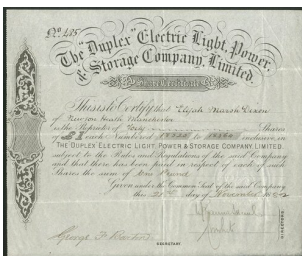 No. 485
The "Duplex" Electric Light, Power,
& Storage Company, Limited.
Share Certificate
This is to Certify that Elijah Marsh Dixon
of Newton Heath Manchester
is the Proprietor of Forty Shares
of £ each Numbered to inclusive, in
THE DUPLEX ELECTRIC LIGHT, POWER & STORAGE COMPANY LIMITED
subject to the Rules and Regulations of the said Company
and that there has been paid in respect of each of such
Shares the sum of One Pound
Given under the Common Seal of the said Company
this day of December 1882
DIRECTORS
George F
SECRETARY